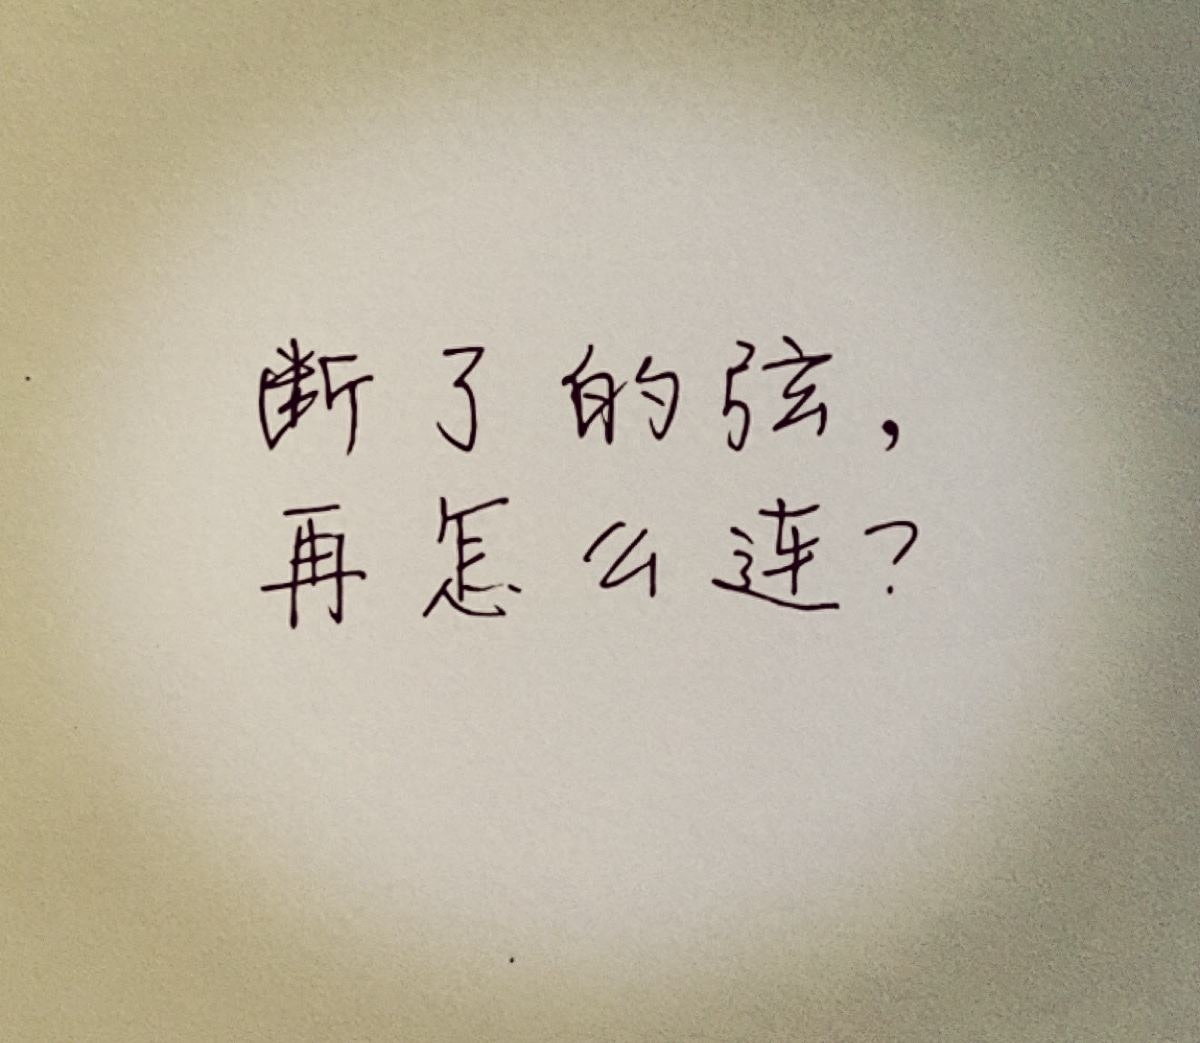 断了的弦，
再怎么连？